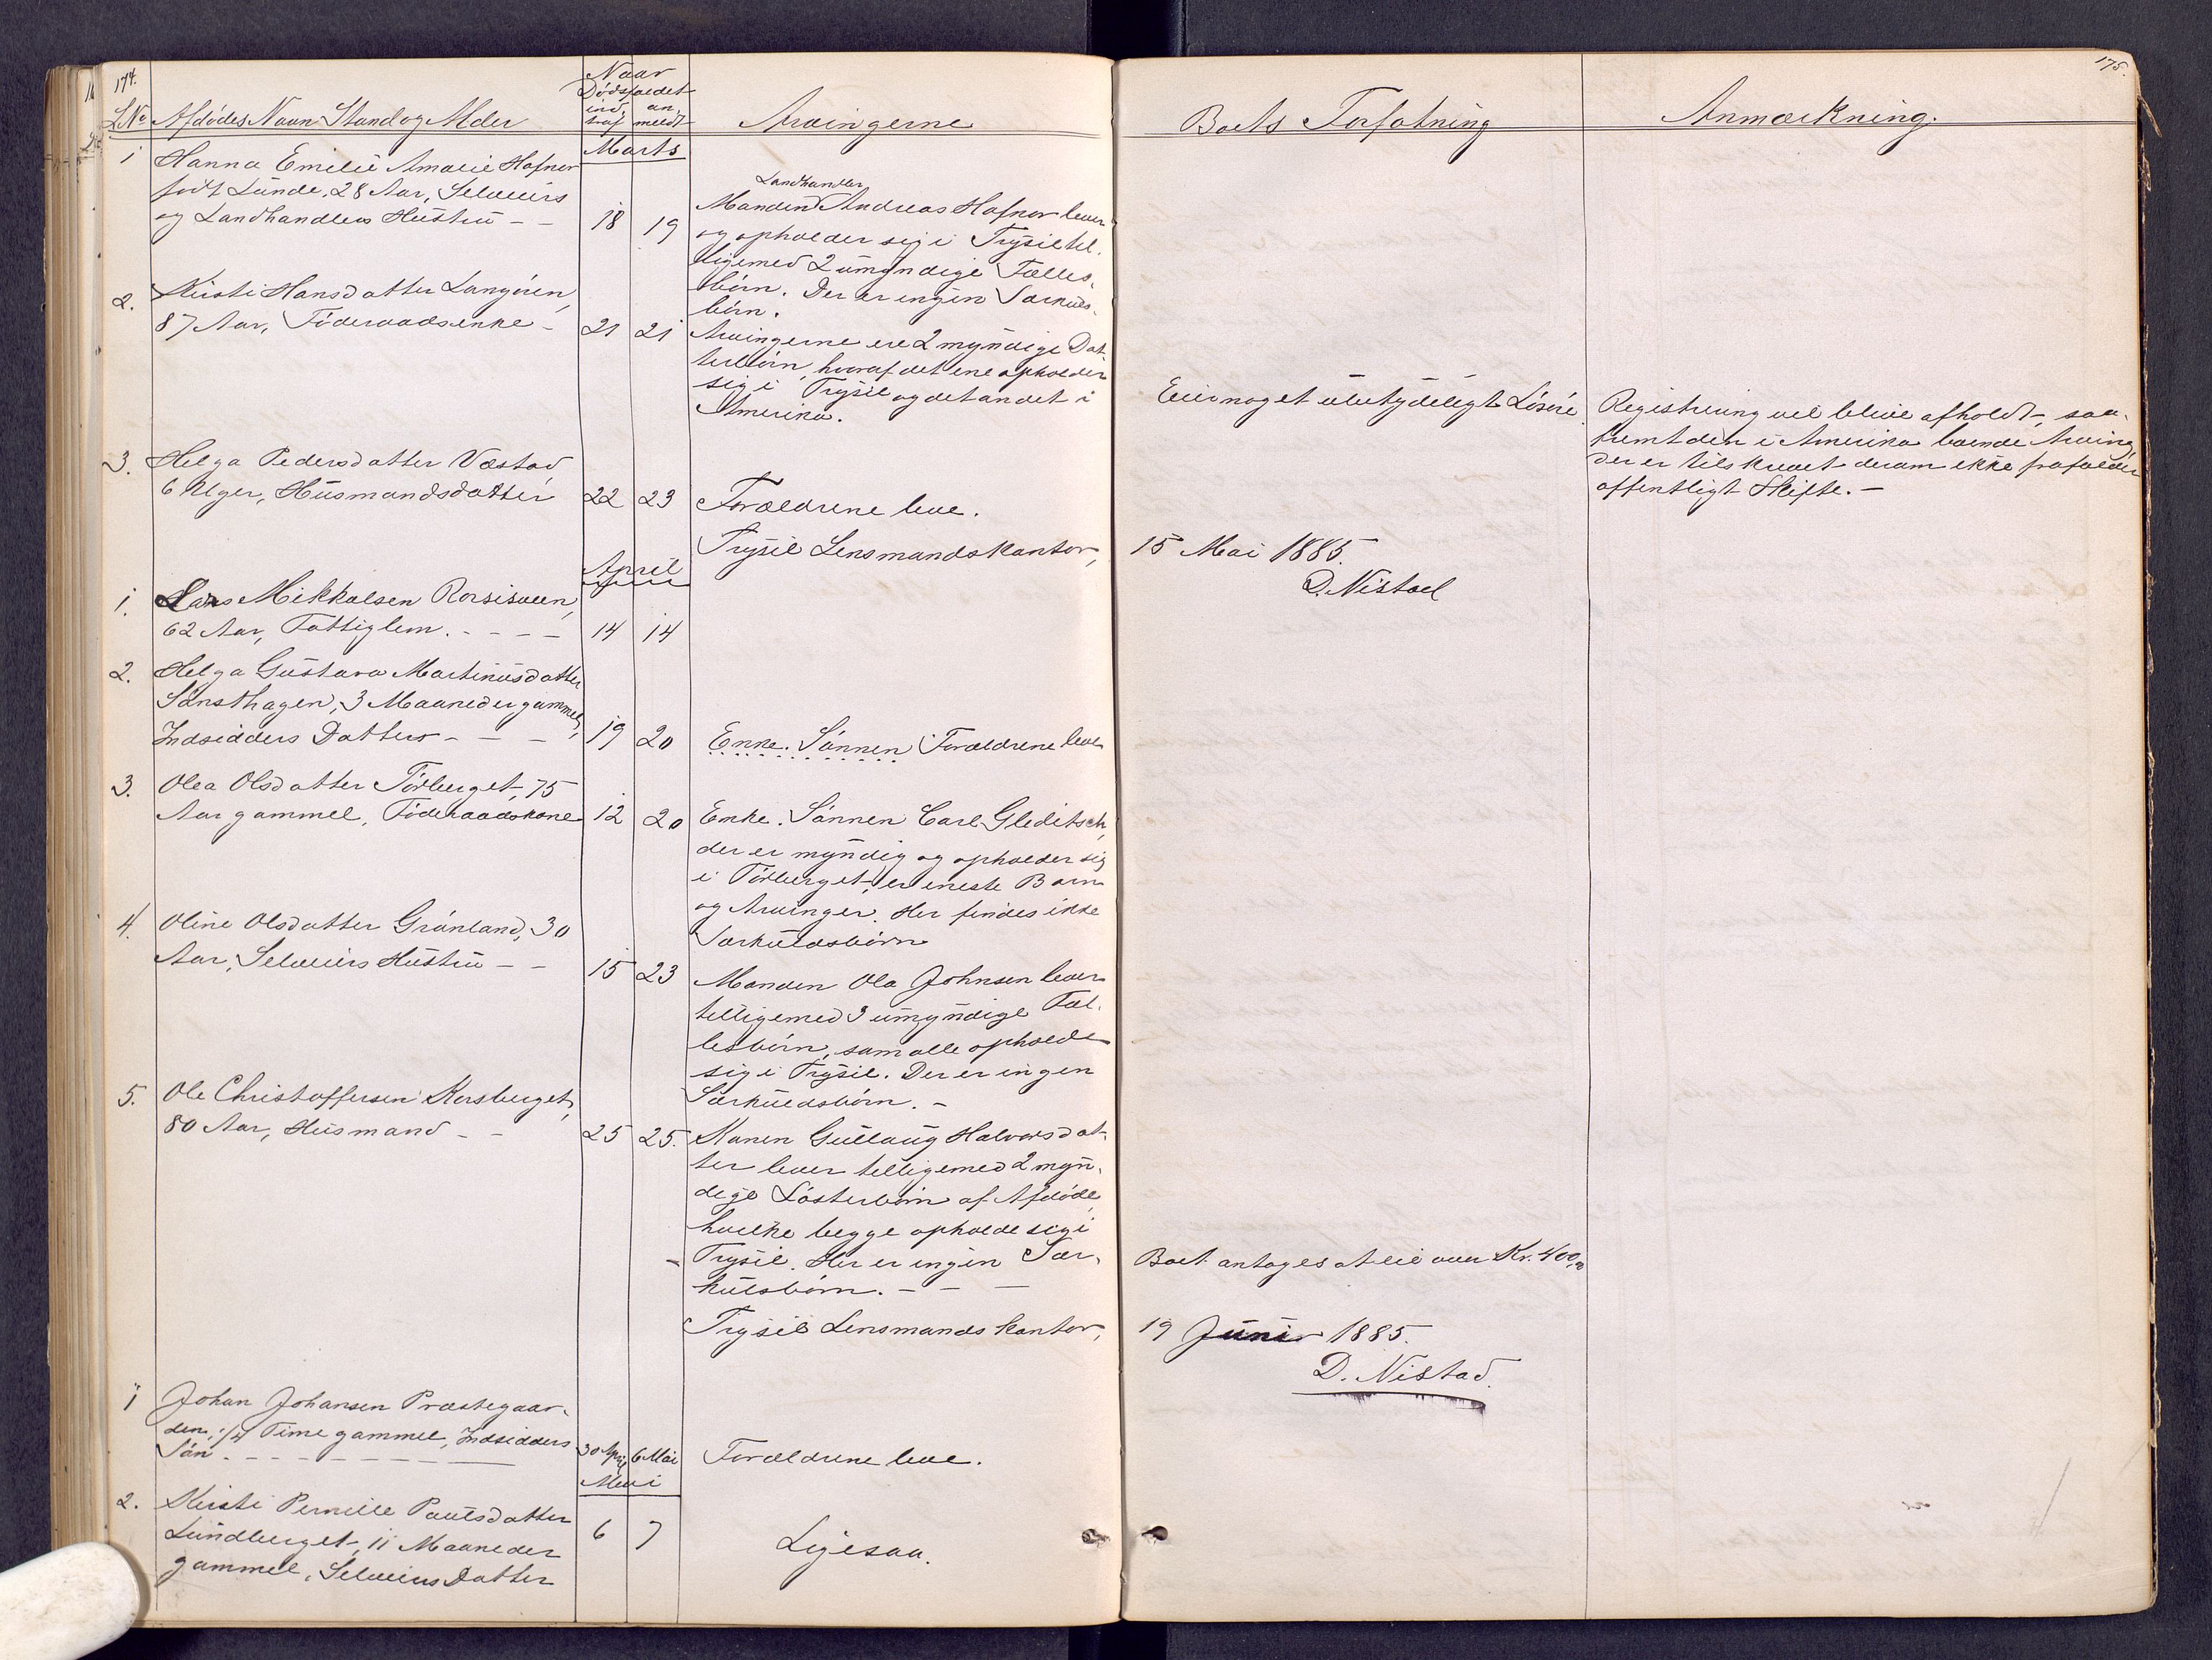 174.
Naar
Dødsfaldet
LNo Afdødes Navn Stand og Alder
ind- an-
traf meldt
Arvingerne
Marts
1 Hanna Emilie Amalie Hafnor
født Lunde, 28 Aar, Selveiers
og Landhandlers Hustru - - 18 19
Landhandler
Manden Andreas Hafnor lever
og opholder sig i Trysil til-
ligemed 2 umyndige Fælles-
børn. Der er ingen Særkuls-
børn.
2. Kirsti Hansdatter Langøren,
87 Aar, Føderaadsenke - 21 21
Arvingerne ere 2 myndige Dat-
terbørn, hvoraf det ene opholder
sig i Trysil og det andet i
Amerika.
3. Helga Pedersdatter Væstad
6 Uger, Husmandsdatter 22 23 Forældrene leve.
Trysil Lensmandskontor,
April
1. Lars Mikkelsen
62 Aar, Fattiglem. - - - - 14 14
2. Helga Gustava Martinusdatter
3 Maaneder gammel,
Indsidders Datter - - - 19 20 Enke. Sønnen Forældrene leve
3. Olea Olsdatter Tørberget, 75
Aar gammel, Føderaadskone 12 20 Enke. Sønnen Carl Gleditsch,
der er myndig og opholder sig
i Tørberget, er eneste Barn
og Arvinger. Her findes ikke
Særkuldsbørn
4. Oline Olsdatter Grønland, 30
Aar, Selveiers Hustru - - 15 23 Manden Ola Johnsen lever
tilligemed 3 umyndige Fæl-
lesbørn, som alle opholde
sig i Trysil. Der er ingen
Særkuldsbørn. -
5. Ole Christoffersen Korsberget,
80 Aar, Husmand - - 25 25. Konen Gullaug Halvorsdat-
ter lever tilligemed 2 myn-
dige Døtterbørn af Afdøde,
hvilke begge opholde sig i
- Trysil. Her er ingen Sær-
kulsbørn. - - -
Trysil Lensmandskontor,
1 Johan Johansen Præstegaar-
den, 1/4 Time gammel, Indsidders
Søn - - - - - 30 April 6 Mai Forældrene leve.
Mai
2. Kirsti Pernille Paulsdatter
Lundberget, 11 Maaneder 6 7 Ligesaa.
gammel, Selveiers Datter
175.
Boets Forfatning Anmærkning.
Eier noget ubetydeligt Løsøre. Registrering vil blive afholdt, saa-
fremt den i Amerika boende Arving,
der er tilskrevet derom ikke frafalder
offentligt Skifte. -
15 Mai 1885.
D. Nistad
Boet antages at eie over Kr. 400,00
19 Juni 1885.
D. Nistad.